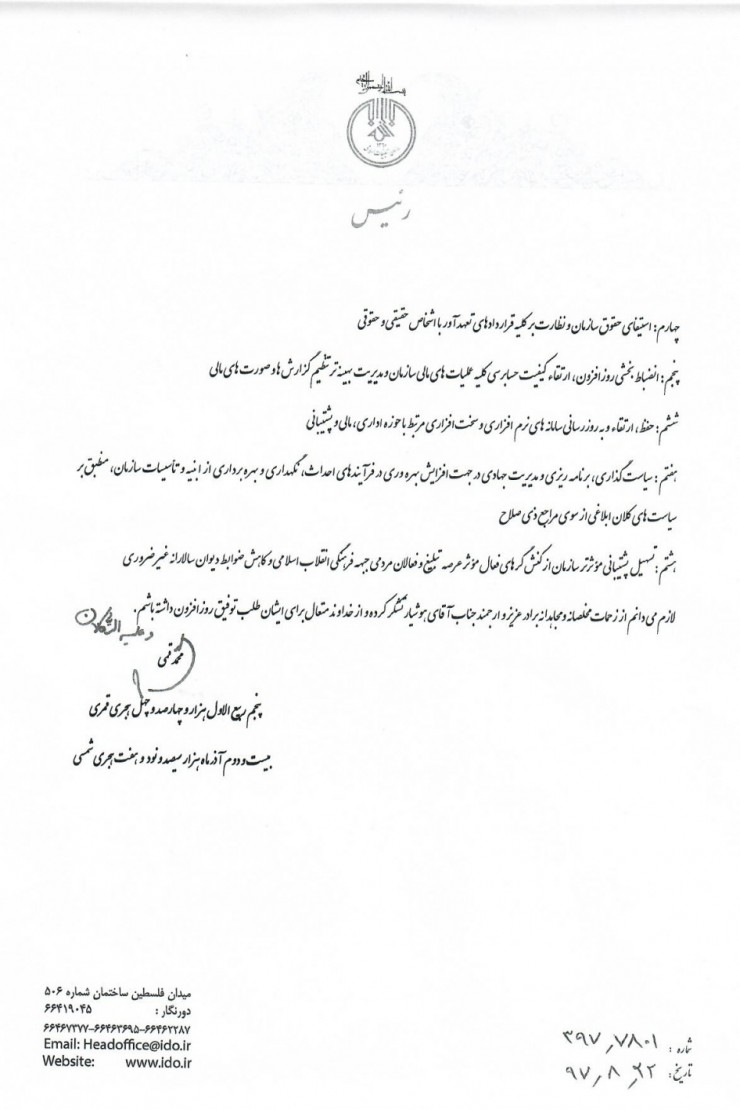 رئیس
چهارم: استیفای حقوق سازمان و نظارت بر کلیه قراردادهای تعهدآور با اشخاص حقیقی و حقوقی
پنجم: انضباط بخشی روزافزون، ارتقاء کیفیت حسابرسی کلیه عملیات های مالی سازمان و مدیریت بهینه تر تنظیم گزارش ها و صورت های مالی
ششم: حفظ، ارتقاء و به روزرسانی سامانه های نرم افزاری و سخت افزاری مرتبط با حوزه اداری، مالی و پشتیبانی
هفتم: سیاست گذاری، برنامه ریزی و مدیریت جهادی در جهت افزایش بهره وری در فرآیندهای احداث، نگهداری و بهره برداری از ابنیه و تأسیسات سازمان، منطبق بر
سیاست های کلان ابلاغی از سوی مراجع ذی صلاح
هشتم: تسهیل پشتیبانی مؤثرتر سازمان از کنش گرهای فعال مؤثر عرصه تبلیغ و فعالان مردمی جبهه فرهنگی انقلاب اسلامی و کاهش ضوابط دیوان سالارانه غیر ضروری
لازم می دانم از زحمات مخلصانه و مجاهدانه برادر عزیز و ارجمند جناب آقای هوشیار تشکر کرده و از خداوند متعال برای ایشان طلب توفیق روزافزون داشته باشم.
و علیه التکلان
محمد قمی
پنجم ربیع الاول هزار و چهارصد و چهل هجری قمری
بیست و دوم آذر ماه هزار سیصد و نود و هفت هجری شمسی
میدان فلسطین ساختمان شماره ۵۰۶
دورنگار : ۶۶۴۱۹۰۴۵
۶۶۴۶۷۳۷۷-۶۶۴۶۳۶۹۵-۶۶۴۶۲۲۸۷
Email: Headoffice@ido.ir
Website: www.ido.ir
شماره : ۳۹۷٫۷۸۰۱
تاریخ: ۹۷٫۸٫۲۲